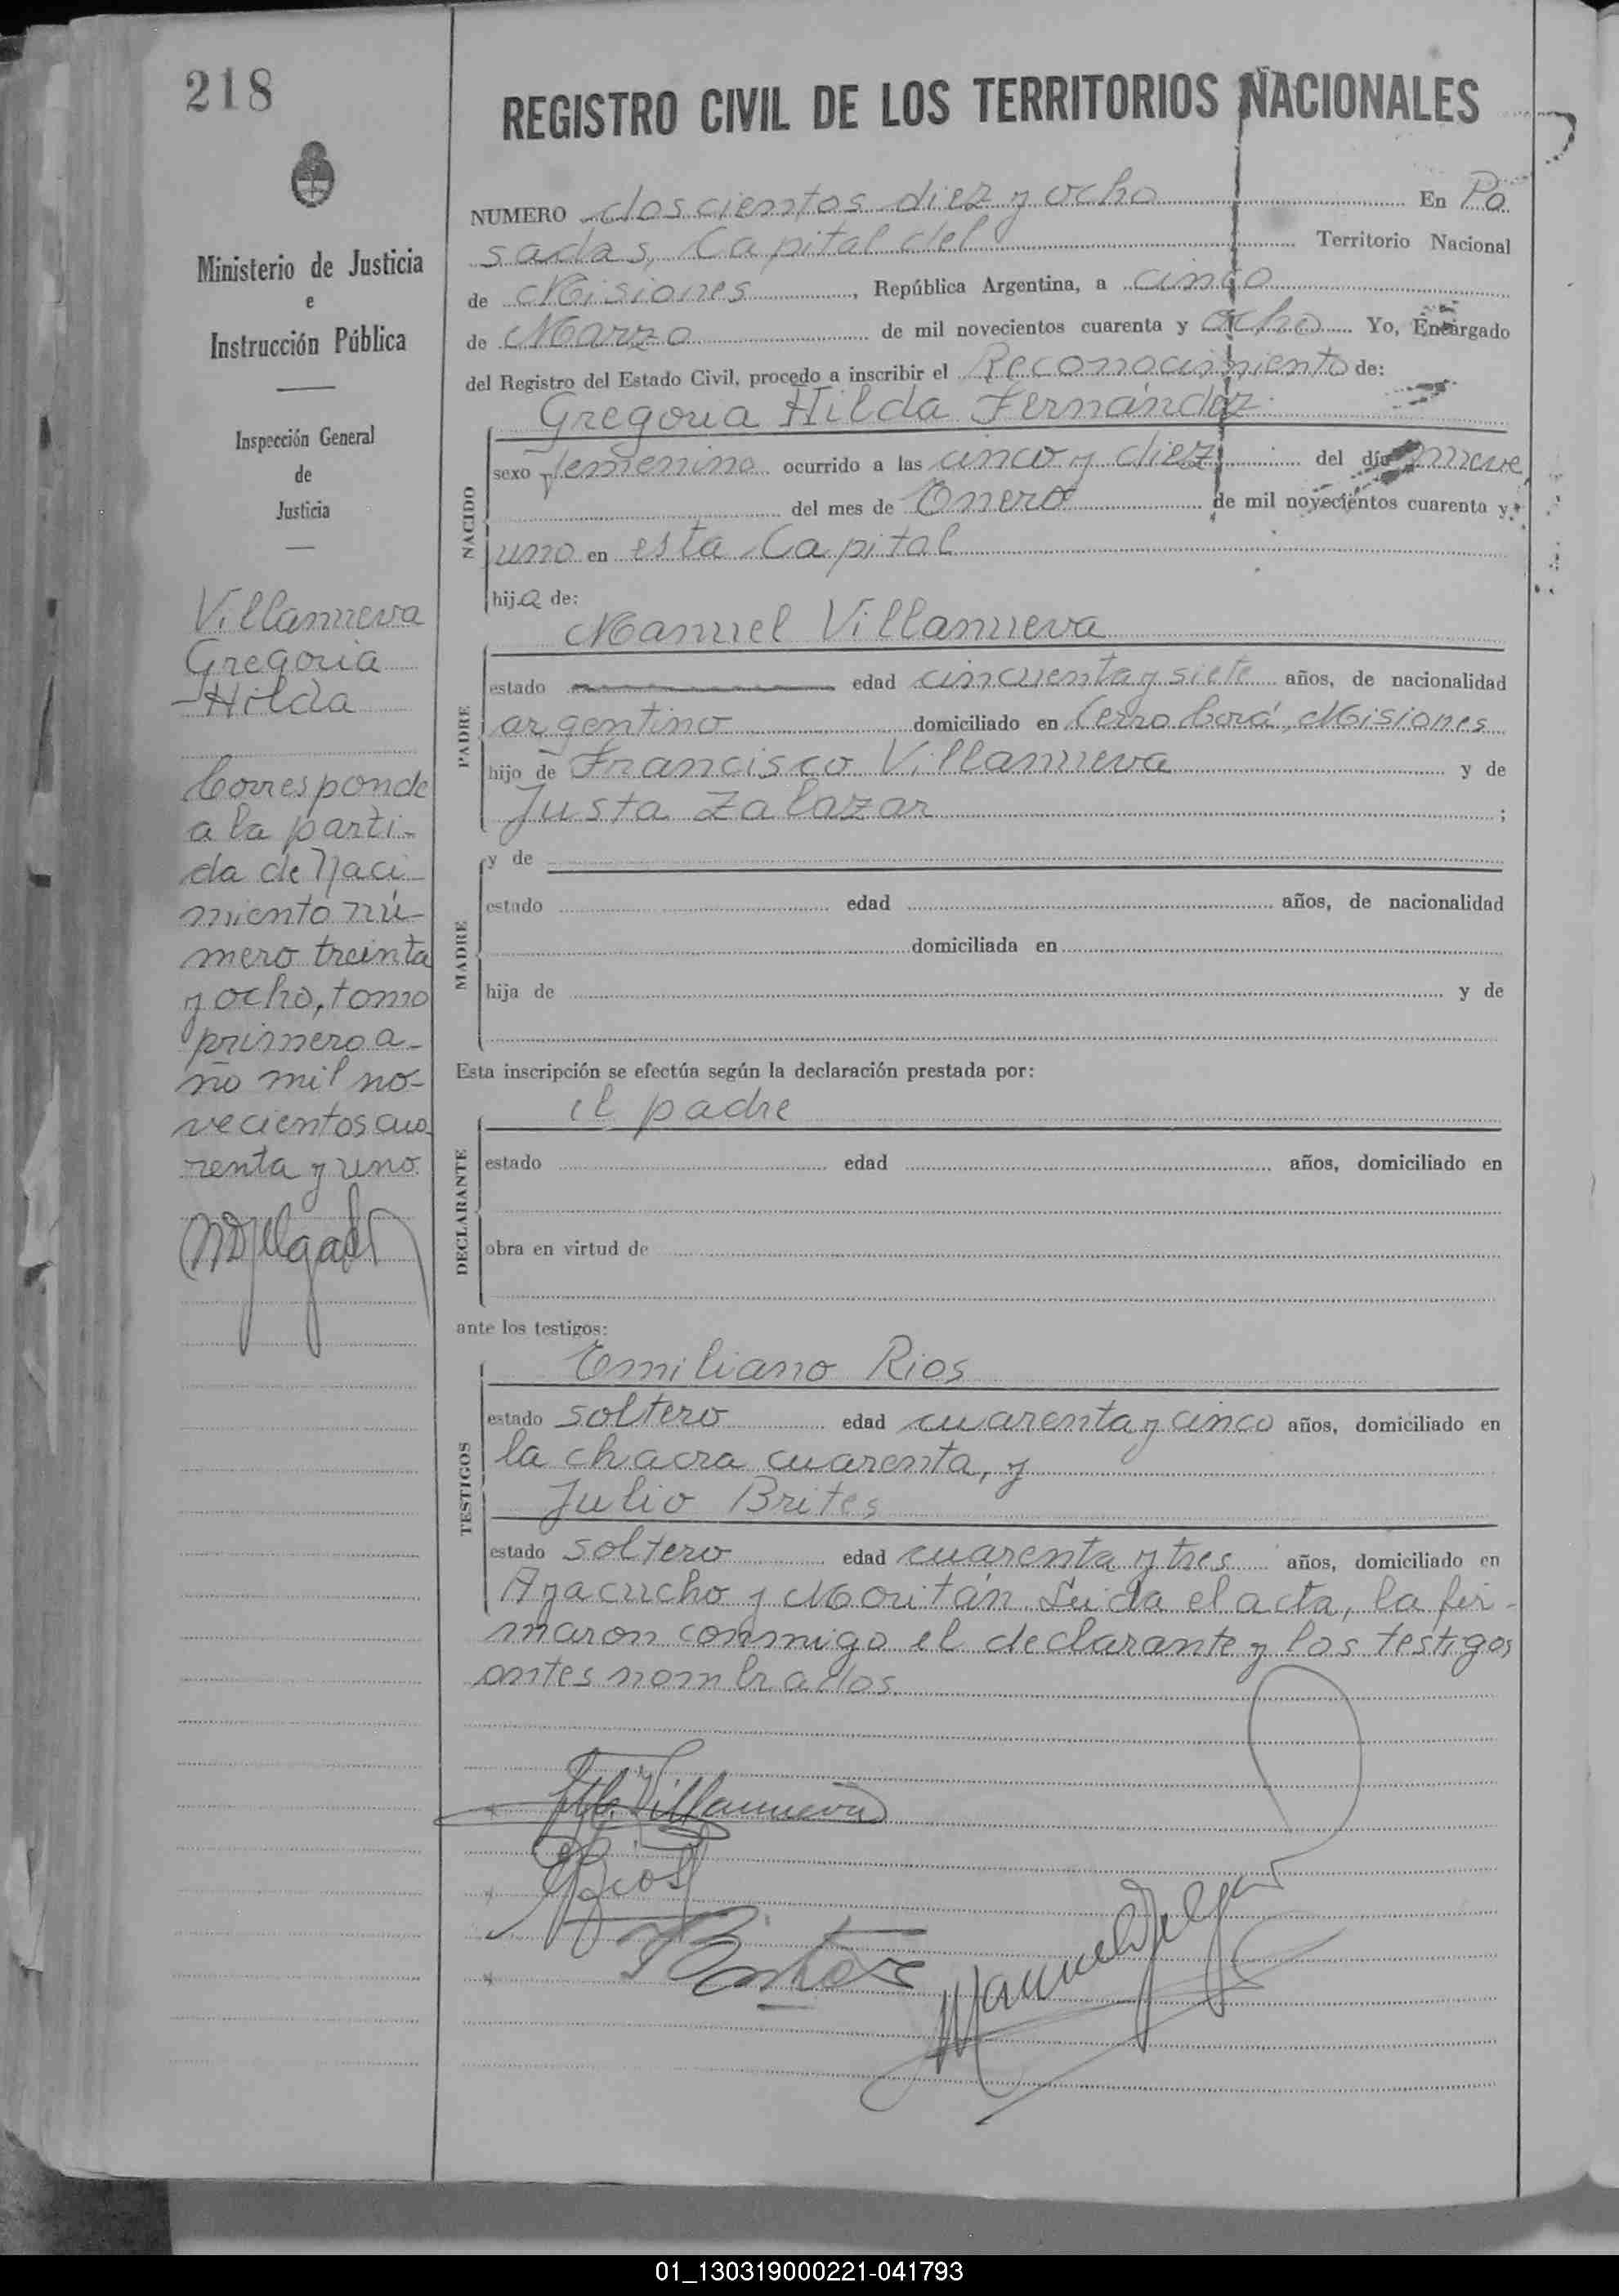 218
Ministerio de Justicia
e
Instrucción Pública
Inspección General
de
Justicia
Villanueva
Gregoria
Hilda
Corresponde
a la parti-
da de Naci
miento nú-
mero treinta
y ocho, tomo
primero a-
ño mil no-
vecientos cua-
renta y uno.
REGISTRO CIVIL DE LOS TERRITORIOS NACIONALES
NUMERO doscientos diez y ocho En Po
sadas, Capital del Territorio Nacional
de Misiones, República Argentina, a cinco
de Marzo de mil novecientos cuarenta y ocho Yo, Encargado
del Registro del Estado Civil, procedo a inscribir el Reconocimiento de:
Gregoria Hilda Fernández
NACIDO
sexo femenino ocurrido a las cinco y diez del día nueve
del mes de Enero de mil novecientos cuarenta y
uno en esta Capital
hija de:
Manuel Villanueva
PADRE
estado edad cincuenta y siete años, de nacionalidad
argentino domiciliado en Cerro Corá, Misiones
hijo de Francisco Villanueva y de
Justa Zalazar ;
y de
MADRE
estado edad años, de nacionalidad
domiciliada en
hija de y de
Esta inscripción se efectúa según la declaración prestada por:
el padre
DECLARANTE
estado edad años, domiciliado en
obra en virtud de
ante los testigos:
Emiliano Rios
TESTIGOS
estado soltero edad cuarenta y cinco años, domiciliado en
la chacra cuarenta, y
Julio Brites
estado soltero edad cuarenta y tres años, domiciliado en
Ayacucho y Moritán. Leida el acta, la fir-
maron conmigo el declarante y los testigos
antes nombrados
Villanueva
Rios
Manuel Delgado
01_130319000221-041793